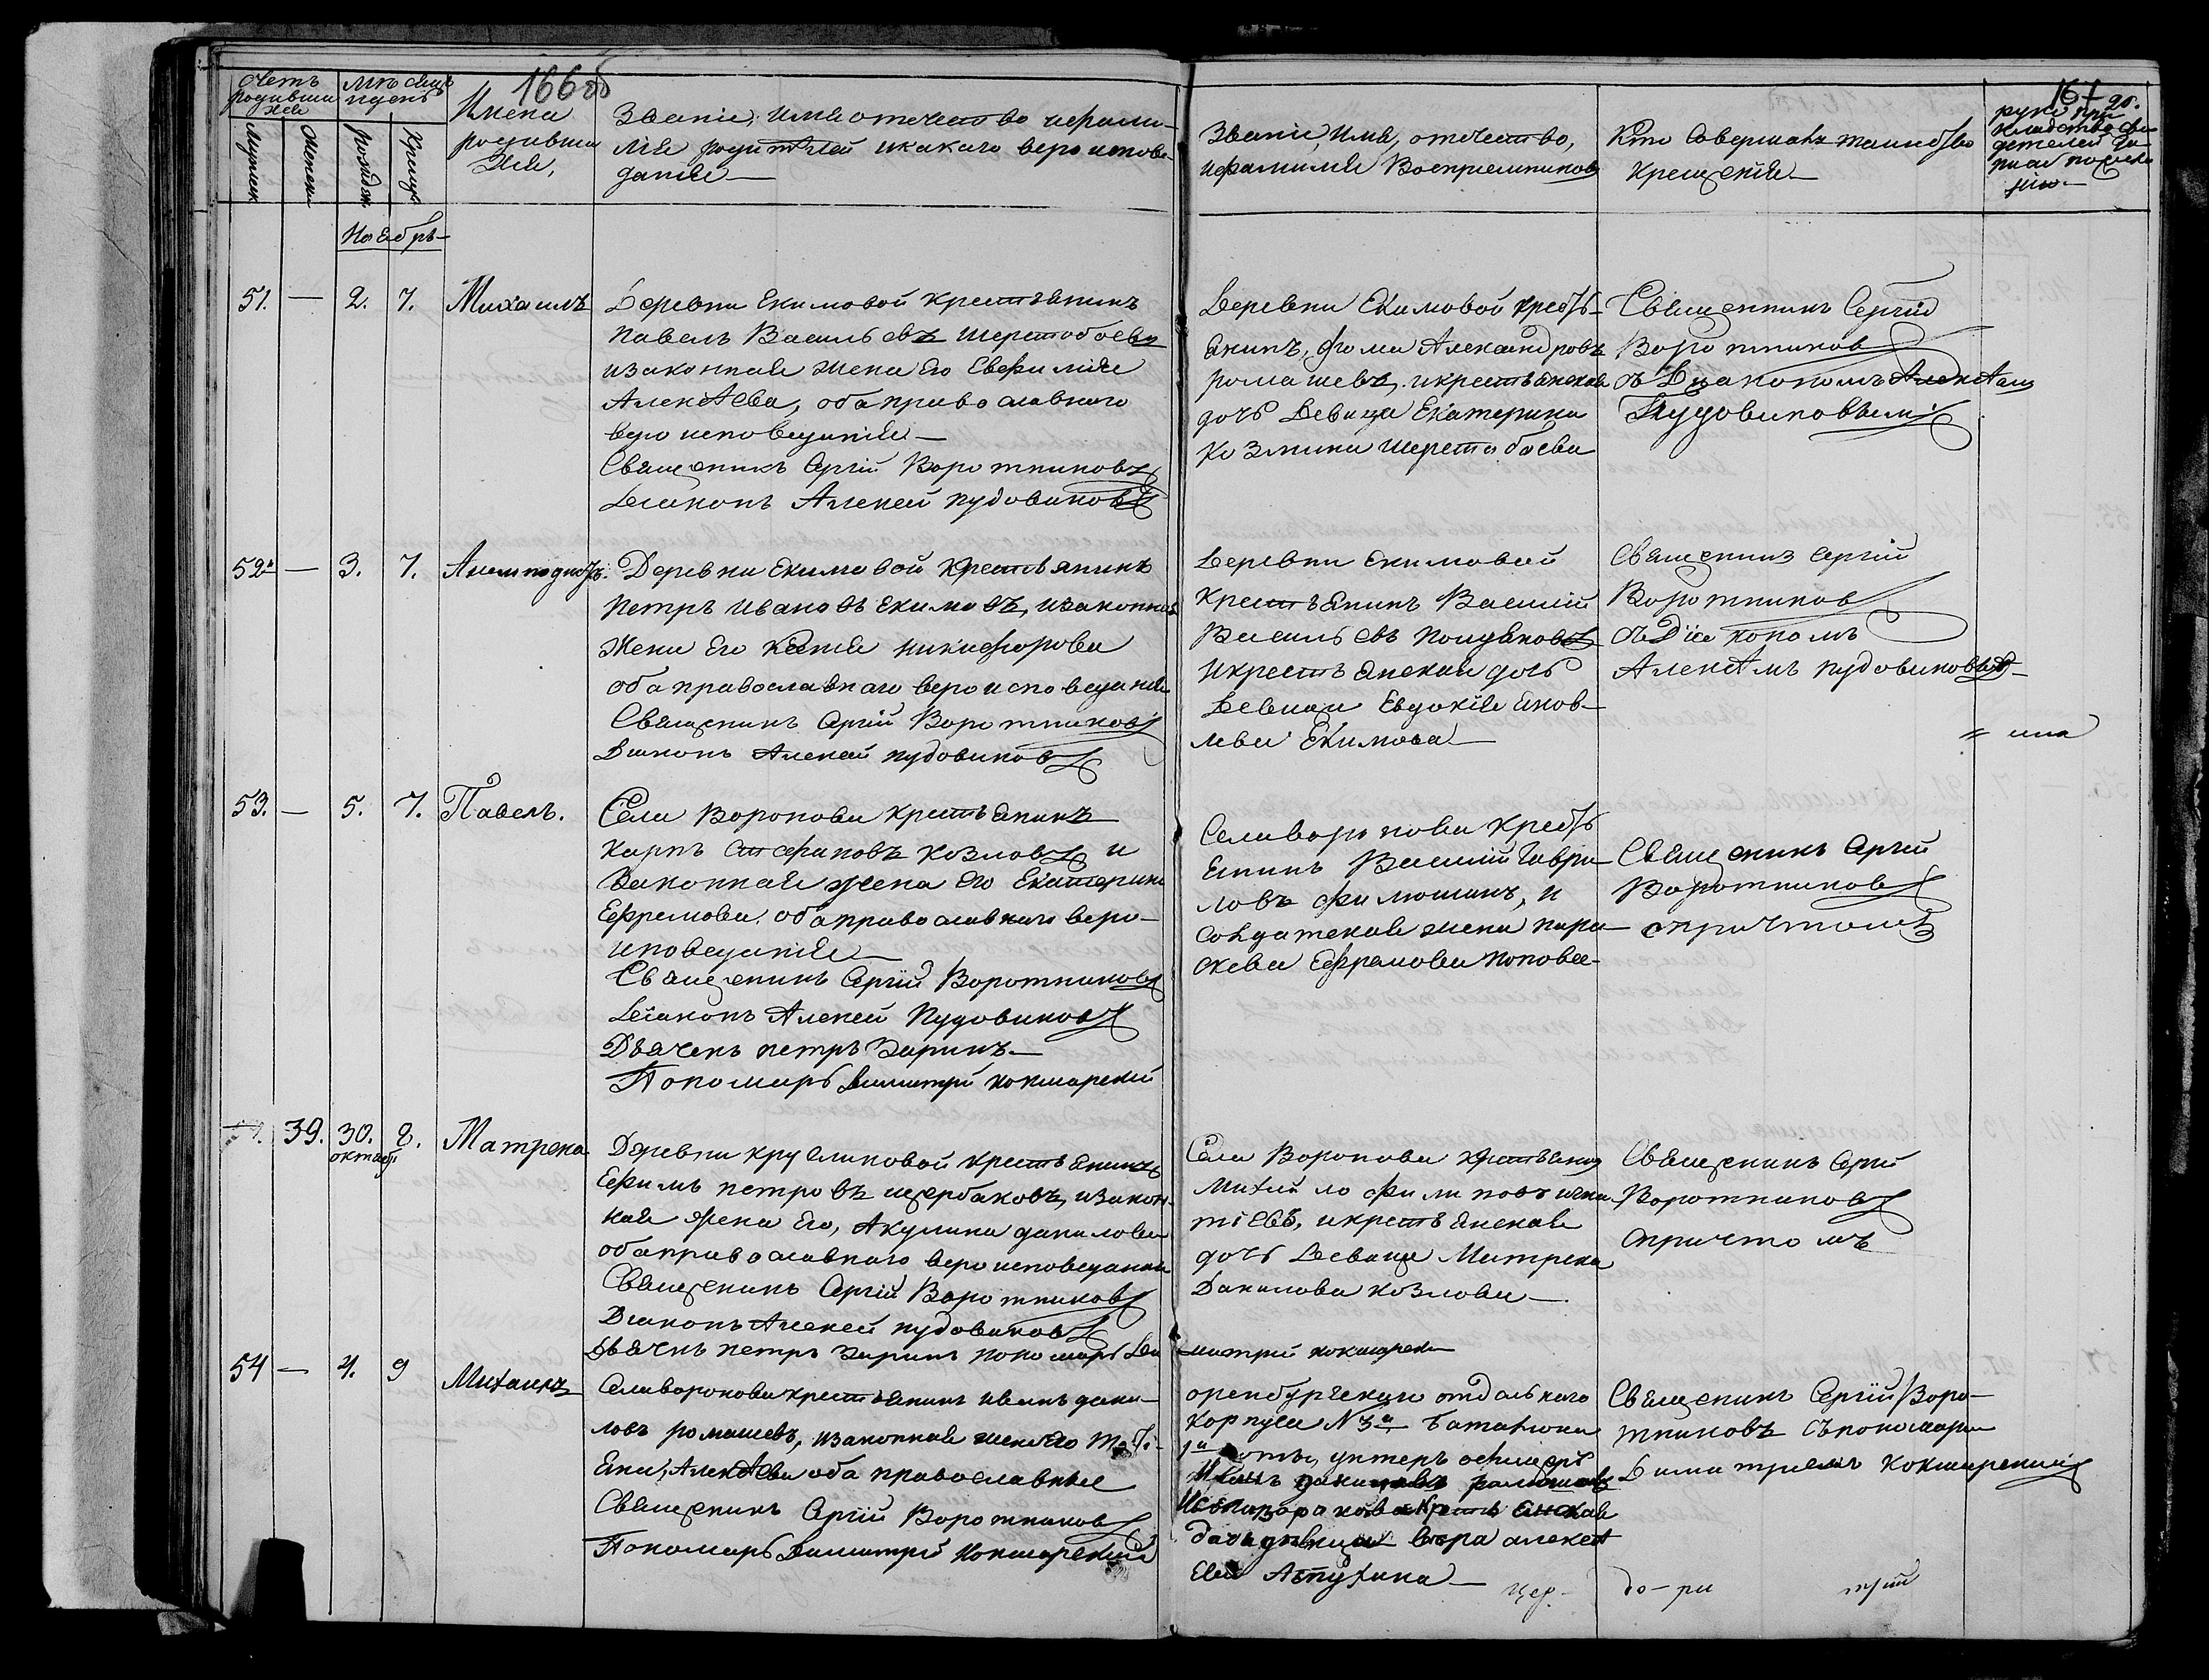 166 об
167
Счетъ родившихся
Мѣсяцъ и день
Имена родившихся
Званіе, имя отечество и фамилія родителей и какаго вероисповеданія
Званіе, имя, отечество, и фамилия Восприемниковъ
Кто Совершалъ таинство Крещенія
Ноябрь
51. — 2. 7. Михаилъ
Деревни Екимовой крестьянинъ
Павелъ Васильевъ Шерстобоевъ
и законная жена его Евфимия
Алексѣева, оба православного
вероисповедания
Священникъ Сергий Воротниковъ
Диаконъ Алексей Пудовиковъ
Деревни Екимовой кресть-
янинъ, Фома Александровъ
ромашевъ, и крестьянская
дочь Девица Екатерина
Козмина Шерстобоева
Священникъ Сергій
Воротников
съ Диакономъ Алексѣем
Пудовиковым
52 — 3. 7.
Деревни Екимовой крестьянинъ
Петръ Ивановъ Екимовъ, и законная
жена его Ксения Никифорова
оба православнаго вероисповедания
Священникъ Сергий Воротниковъ
Диаконъ Алексей Пудовиковъ
Деревни Екимовой
крестьянинъ Василий
Васильевъ Полуяновъ
и крестьянская дочь
Девица Евдокия Яков-
лева Екимова
Священник Сергий
Воротников
съ Диакономъ
Алексѣмъ Пудовиковым
53. — 5. 7. Павелъ.
Села Воронова крестьянинъ
Карпъ Стефановъ Козловъ и
Законная жена его Екатерина
Ефремова, оба православнаго веро-
исповедания
Священникъ Сергій Воротниковъ
Диаконъ Алексей Пудовиковъ
Дьячекъ Петръ Заринъ
Пономарь Димитрій Кокшарский
Села Воронова Кресть
янинъ Василий Гаври-
ловъ Филюшинъ, и
Солдатская жена Пара-
скева Ефремова Попова
Священикъ Сергий
Воротниковъ
с причтомъ
39. 30. октябр 8. Матрена
Деревни Кругликовой крестьянинъ
Ефимъ Петровъ Щербаковъ, и закон-
ная жена его, Акулина Данилова
оба православнаго вероисповедания
Священикъ Сергій Воротниковъ
Диаконъ Алексей Пудовиковъ
Дьячекъ Петръ Заринъ Пономарь Ди-
митрий Кокшарский
Села Воронова крестьянинъ
Михайло Филиповъ Игна-
тиевъ, и крестьянская
дочь Девица Матрена
Данилова Козлова
Священикъ Сергий
Воротниковъ
с причтомъ
54 — 4. 9 Михаилъ
Села Воронова крестьянинъ Иванъ Дани-
ловъ ромашевъ, и законная жена его Тать-
яна, Алексѣева оба православные
Священикъ Сергій Воротниковъ
Пономарь Димитрий Кокшарский
оренбургскаго отдельнаго
Корпуса №3й баталиона
1й роты, унтеръ офицеръ
Иванъ Данилов ромашевъ
и села Воронова крестьянская
дочь девица Вера Алексѣ
ева Лепухина
Священикъ Сергій Воро-
тниковъ съ пономаремъ
Димитриемъ Кокшарскимъ
Цер-